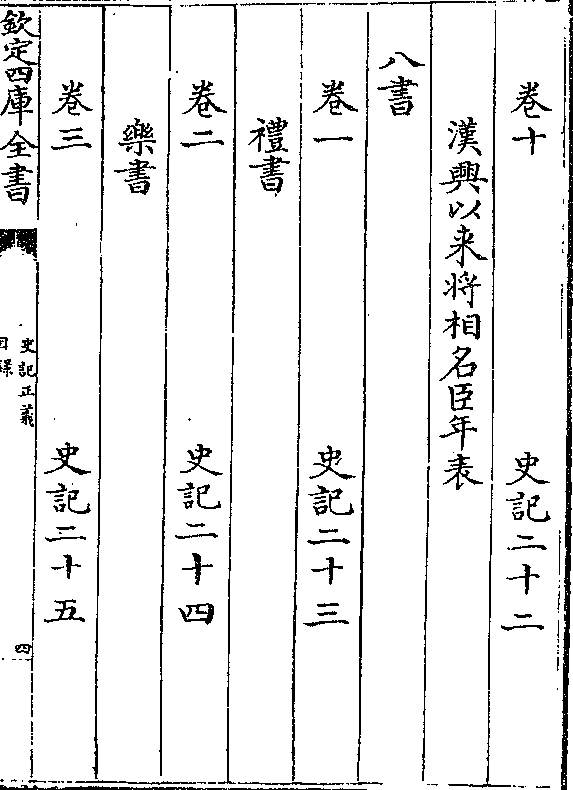 卷十 史記二十二
漢興以来將相名臣年表
八書
卷一 史記二十三
禮書
卷二 史記二十四
樂書
卷三 史記二十五
欽定四庫全書
史記正義
目録
四